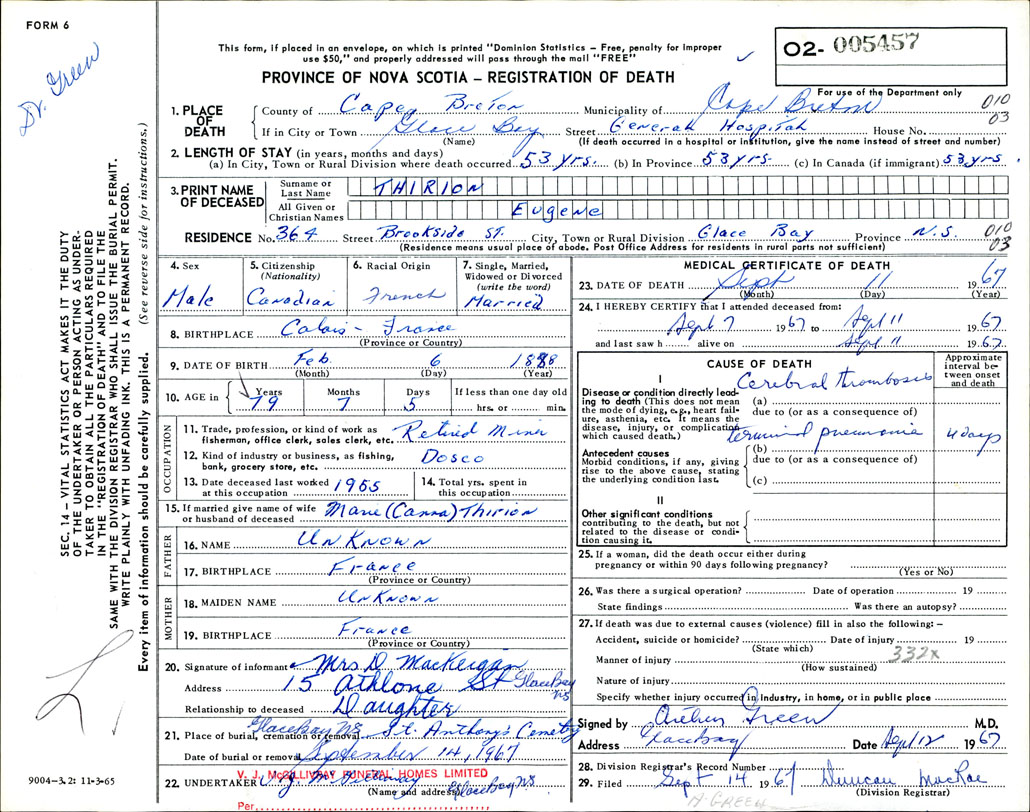 FORM 6
Dr. Green
This form, if placed in an envelope, on which is printed "Dominion Statistics – Free, penalty for improper
use $50," and properly addressed will pass through the mail "FREE"
PROVINCE OF NOVA SCOTIA – REGISTRATION OF DEATH
O2- 005457
For use of the Department only
010
03
1. PLACE OF DEATH
County of Cape Breton Municipality of Cape Breton
If in City or Town Glace Bay Street General Hospital House No.
(Name) (If death occurred in a hospital or institution, give the name instead of street and number)
2. LENGTH OF STAY (in years, months and days)
(a) In City, Town or Rural Division where death occurred 53 yrs. (b) In Province 53 yrs (c) In Canada (if immigrant) 53 yrs.
3. PRINT NAME OF DECEASED
Surname or Last Name THIRION
All Given or Christian Names EugenE
RESIDENCE No. 364 Street Brookside ST. City, Town or Rural Division Glace Bay Province N.S. 010
03
(Residence means usual place of abode. Post Office Address for residents in rural parts not sufficient)
4. Sex
Male
5. Citizenship
(Nationality)
Canadian
6. Racial Origin
French
7. Single, Married,
Widowed or Divorced
(write the word)
Married
8. BIRTHPLACE Calais - France
(Province or Country)
9. DATE OF BIRTH Feb. 6 1888
(Month) (Day) (Year)
10. AGE in Years 79 Months 7 Days 5 If less than one day old
hrs. or min.
OCCUPATION
11. Trade, profession, or kind of work as
fisherman, office clerk, sales clerk, etc. Retired Miner
12. Kind of industry or business, as fishing,
bank, grocery store, etc. Dosco
13. Date deceased last worked
at this occupation 1955
14. Total yrs. spent in
this occupation
15. If married give name of wife
or husband of deceased Marie (Canna) Thirion
FATHER
16. NAME UnKnown
17. BIRTHPLACE France
(Province or Country)
MOTHER
18. MAIDEN NAME UnKnown
19. BIRTHPLACE France
(Province or Country)
20. Signature of informant Mrs D MacKeigan
Address 15 Athlone St Glace Bay NS
Relationship to deceased Daughter
21. Place of burial, cremation or removal Glace Bay NS St. Anthony's Cemetry
Date of burial or removal September 14, 1967
22. UNDERTAKER V. J. McGILLIVRAY FUNERAL HOMES LIMITED
(Name and address) Glace Bay NS
Per
MEDICAL CERTIFICATE OF DEATH
23. DATE OF DEATH Sept 11 1967
(Month) (Day) (Year)
24. I HEREBY CERTIFY that I attended deceased from:
Sept 7 1967 to Sept 11 1967
and last saw h alive on Sept 11 1967
CAUSE OF DEATH
Approximate
interval be-
tween onset
and death
I
Disease or condition directly lead-
ing to death (This does not mean
the mode of dying, e.g., heart fail-
ure, asthenia, etc. It means the
disease, injury, or complication
which caused death.)
Cerebral thrombosis
(a)
due to (or as a consequence of)
terminal pneumonia 4 days
(b)
due to (or as a consequence of)
(c)
Antecedent causes
Morbid conditions, if any, giving
rise to the above cause, stating
the underlying condition last.
II
Other significant conditions
contributing to the death, but not
related to the disease or condi-
tion causing it.
25. If a woman, did the death occur either during
pregnancy or within 90 days following pregnancy?
(Yes or No)
26. Was there a surgical operation? Date of operation 19
State findings Was there an autopsy?
27. If death was due to external causes (violence) fill in also the following: –
Accident, suicide or homicide? Date of injury 19
(State which) 332x
Manner of injury
(How sustained)
Nature of injury
Specify whether injury occurred in industry, in home, or in public place
Signed by Arthur Green M.D.
Address Glace Bay Date Sept 12 1967
28. Division Registrar's Record Number
29. Filed Sept 14 1967 Duncan MacRae
(Division Registrar)
A GREEN
SEC. 14 – VITAL STATISTICS ACT MAKES IT THE DUTY
OF THE UNDERTAKER OR PERSON ACTING AS UNDER-
TAKER TO OBTAIN ALL THE PARTICULARS REQUIRED
IN THE "REGISTRATION OF DEATH" AND TO FILE THE
SAME WITH THE DIVISION REGISTRAR WHO SHALL ISSUE THE BURIAL PERMIT.
WRITE PLAINLY WITH UNFADING INK. THIS IS A PERMANENT RECORD.
Every item of information should be carefully supplied. (See reverse side for instructions.)
9004-3.2: 11-3-65